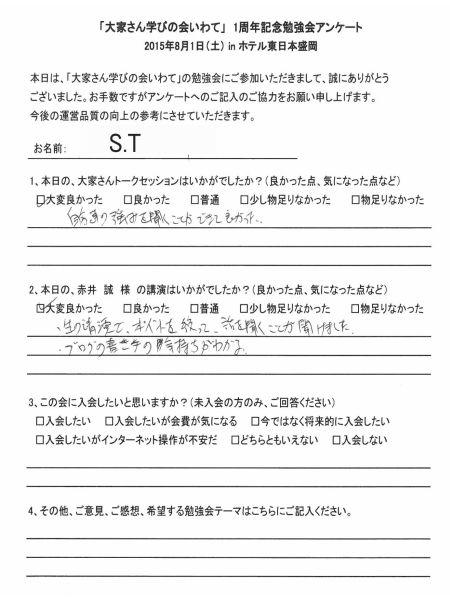 「大家さん学びの会いわて」 1周年記念勉強会アンケート
2015年8月1日(土) in ホテル東日本盛岡
本日は、「大家さん学びの会いわて」の勉強会にご参加いただきまして、誠にありがとう
ございました。お手数ですがアンケートへのご記入のご協力をお願い申し上げます。
今後の運営品質の向上の参考にさせていただきます。
お名前: S.T
1、本日の、大家さんトークセッションはいかがでしたか?(良かった点、気になった点など)
☐大変良かった ☐良かった ☐普通 ☐少し物足りなかった ☐物足りなかった
の強みを聞くことができてよかった。
2、本日の、赤井 誠 様 の講演はいかがでしたか?(良かった点、気になった点など)
☑大変良かった ☐良かった ☐普通 ☐少し物足りなかった ☐物足りなかった
・生の講演で、ポイントを絞って、話を聞くことが聞けました。
・ブログの書き手の気持ちがわかる。
3、この会に入会したいと思いますか?(未入会の方のみ、ご回答ください)
☐入会したい ☐入会したいが会費が気になる ☐今ではなく将来的に入会したい
☐入会したいがインターネット操作が不安だ ☐どちらともいえない ☐入会しない
4、その他、ご意見、ご感想、希望する勉強会テーマはこちらにご記入ください。